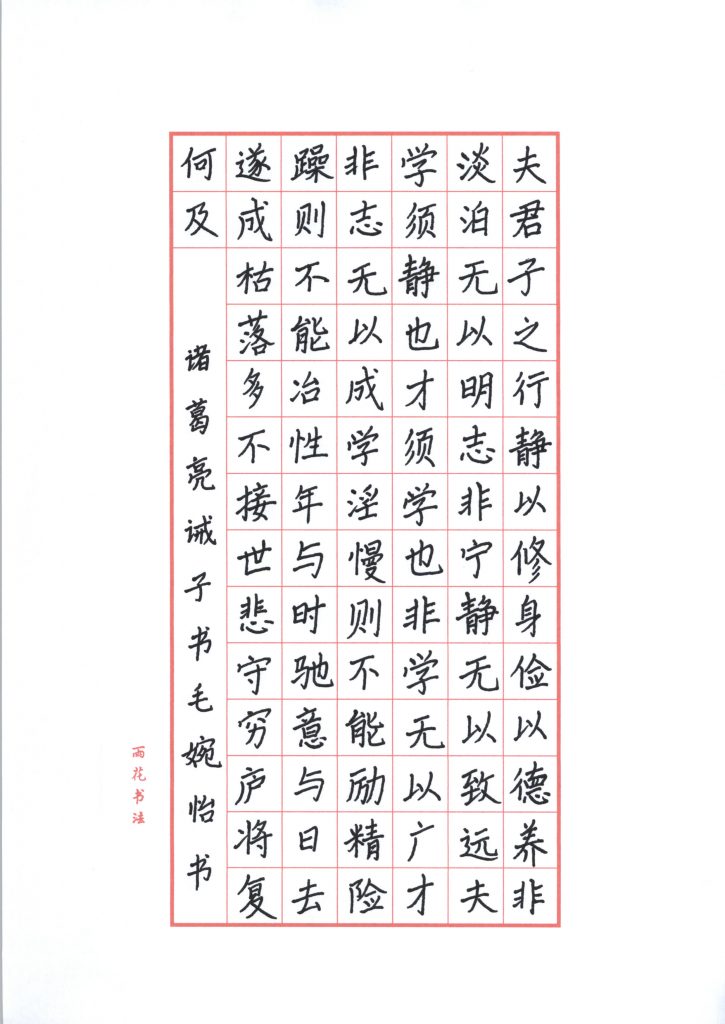 夫君子之行静以修身俭以德养非
淡泊无以明志非宁静无以致远夫
学须静也才须学也非学无以广才
非志无以成学淫慢则不能励精险
躁则不能冶性年与时驰意与日去
遂成枯落多不接世悲守穷庐将复
何及
诸葛亮诫子书毛婉怡书
雨花书法